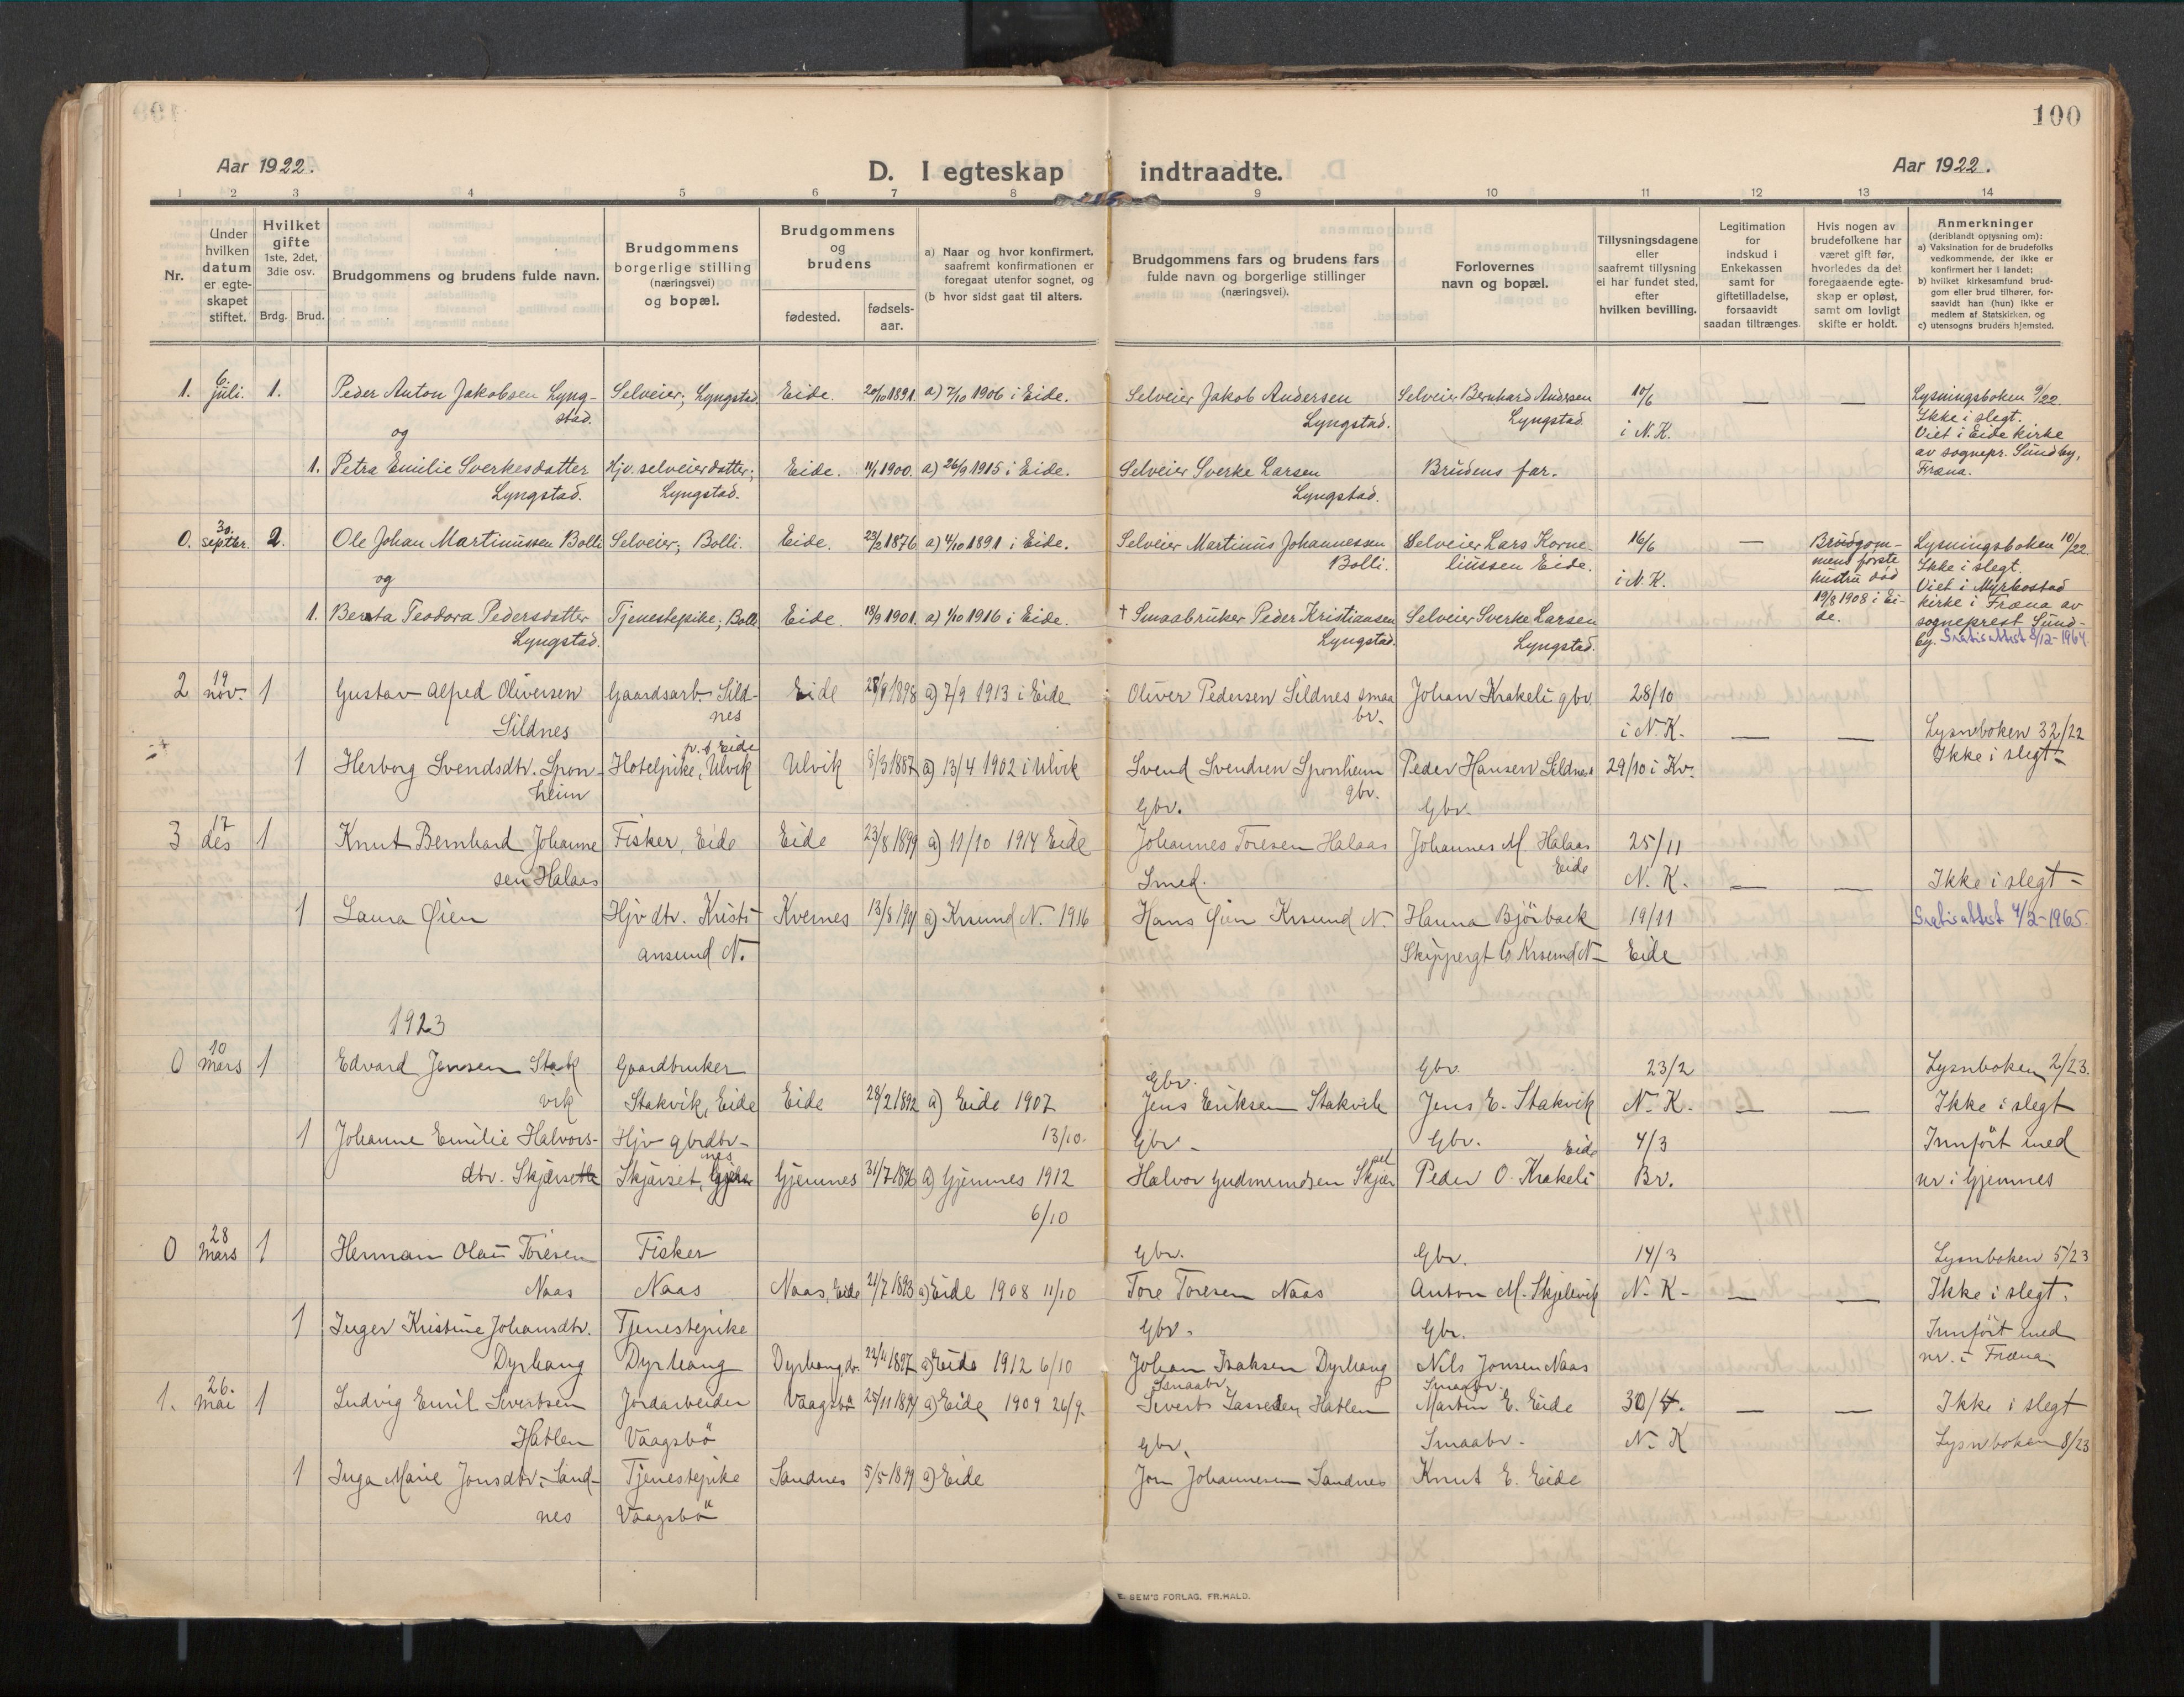 100
Aar 1922.
D. I egteskap indtraadte.
Aar 1922.
1 2 3 4 5 6 7 8 9 10 11 12 13 14
Nr.
Under hvilken datum er egte-skapet stiftet.
Hvilket gifte 1ste, 2det, 3die osv.
Brdg. Brud.
Brudgommens og brudens fulde navn.
Brudgommens borgerlige stilling (næringsvei) og bopæl.
Brudgommens og brudens
fødested.
fødsels-aar.
a) Naar og hvor konfirmert, saafremt konfirmationen er foregaat utenfor sognet, og
(b hvor sidst gaat til alters.
Brudgommens fars og brudens fars fulde navn og borgerlige stillinger (næringsvei).
Forlovernes navn og bopæl.
Tillysningsdagene eller saafremt tillysning ei har fundet sted, efter hvilken bevilling.
Legitimation for Indskud i Enkekassen samt for giftetilladelse, forsaavidt saadan tiltrænges.
Hvis nogen av brudefolkene har været gift før, hvorledes da det foregaaende egte-skap er opløst, samt om lovligt skifte er holdt.
Anmerkninger
(deriblandt opjysning om):
a) Vaksination for de brudefolks vedkommende, der ikke er konfirmert her i landet;
b) hvilket kirkesamfund brud-gom eller brud tilhører, for-saavidt han (hun) ikke er medlem af Statskirken, og
c) utensogns bruders hjemsted.
1. 6. juli. 1. Peder Anton Jakobsen Lyng- Selveier; Lyngstad. Eide. 20/10 1891. a) 7/10 1906 i Eide. Selveier Jakob Andersen Selveier Bernhard Andersen 10/6 — — Lysningsboken 9/22.
stad. Lyngstad. Lyngstad. i N.K. Ikke i slegt.
og Viet i Eide kirke
av sognepr. Sundby,
1. Petra Emilie Sverkesdatter Hjv. selveierdatter; Eide. 11/1 1900. a) 26/9 1915 i Eide. Selveier Sverke Larsen Brudens far. Fræna.
Lyngstad. Lyngstad. Lyngstad.
0. 30. septbr. 2. Ole Johan Martinussen Bolli Selveier; Bolli. Eide. 23/2 1876 a) 4/10 1891 i Eide. Selveier Martinus Johannessen Selveier Lars Korne- 16/6 — Brudgom- Lysningsboken 10/22.
Bolli. liussen Eide. i N.K. mens første Ikke i slegt.
og hustru død Viet i Myrbostad
19/8 1908 i Ei- kirke i Fræna av
1. Berta Teodora Pedersdatter Tjenestepike; Bolli Eide. 18/9 1901. a) 1/10 1916 i Eide. † Smaabruker Peder Kristiansen Selveier Sverke Larsen de. sogneprest Sund-
Lyngstad. Lyngstad. Lyngstad. by. Gratisattest 8/12-1964.
2 19 nov. 1 Gustav Alfred Oliversen Gaardsarb. Sild- Eide 28/8 1898 a) 7/9 1913 i Eide Oliver Pedersen Sildnes smaa Johan Krakeli gbr. 28/10
Sildnes nes br. i N.K. — — Lysnboken 32/22
p. t. Eide Ikke i slegt
1 Herborg Svendsdtr. Spon- Hotelpike, Ulvik Ulvik 8/3 1887 a) 13/4 1902 i Ulvik Svend Svendsen Sponheim Peder Hansen Sildnes 29/10 i Kv.
heim gbr. Gbr. Gbr.
3 17 des 1 Knut Bernhard Johanne Fisker, Eide Eide 23/8 1899 a) 11/10 1914 Eide Johannes Toresen Halaas Johannes M. Halaas 25/11
sen Halaas Smed. Eide N. K. — — Ikke i slegt
1 Laura Øien Hjv dtr. Kristi- Kvernes 13/8 1901 a) Krsund N. 1916 Hans Øien Krsund N. Hanna Bjørbæk 19/11 Gratisattest 4/2-1965.
ansund N. Skippergt 6 Krsund N Eide
1923
0 10 Mars 1 Edvard Jensen Stak Gaardbruker Gbr. Gbr. 23/2 Lysnboken 2/23.
vik Stakvik, Eide Eide 28/2 1892 a) Eide 1907 Jens Eriksen Stakvik Jens E. Stakvik N. K. — — Ikke i slegt
1 Johanne Emilie Halvors- Hjv gbrdtr 13/10. Gbr. Gbr. Eide 4/3 Innført med
dtr. Skjørsette Skjørset, Gjem nes Gjemnes 31/7 1896 a) Gjemnes 1912 Halvor Gudmundsen Skjør set Peder O. Krakeli Br. nr i Gjemnes
6/10
0 28 Mars 1 Herman Olau Toresen Fisker Gbr. Gbr. 14/3 Lysnboken 5/23
Naas Naas Naas, Eide 21/7 1893 a) Eide 1908 11/10 Tore Toresen Naas Anton M. Skjelvik N. K. — — Ikke i slegt.
1 Inger Kristine Johansdtr. Tjenestepike Gbr. Gbr. Innført med
Dyrhaug Dyrhaug Dyrhaug, 22/4 1897 a) Eide 1912 6/10 Johan Isaksen Dyrhaug Nils Jonsen Naas nr. i Fræna
1. 26. Mai 1 Ludvig Emil Sivertsen Jordarbeider Vaagsbø 25/11 1894 a) Eide 1909 26/9. Smaabr. Sivert Lassesen Hatlen Smaabr. Martin E. Eide 30/4. — — Ikke i slegt
Hatlen Vaagsbø Gbr. Smaabr. N. K Lysnboken 8/23
1 Inga Marie Jonsdtr. Sand- Tjenestepike Sandnes 5/5 1899 a) Eide Jon Johannesen Sandnes Knut E. Eide
nes Vaagsbø
E. SEM'S FORLAG. FR.HALD.